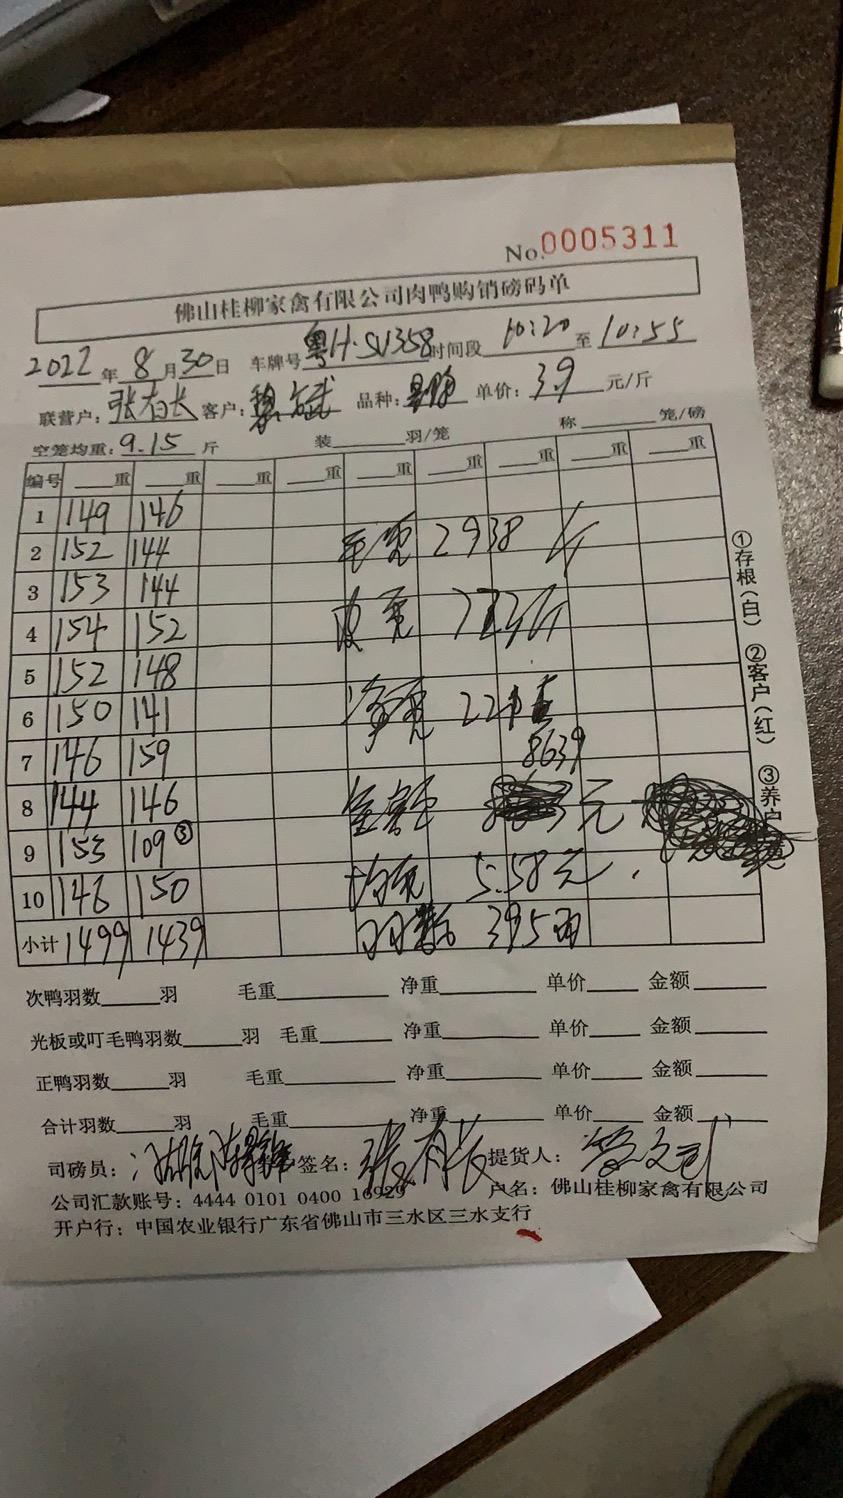 No.0005311
佛山桂柳家禽有限公司肉鸭购销磅码单
2022年8月30日 车牌号 粤H·SV358 时间段 10:20 至 10:55
联营户：张有长 客户： 品种： 单价：3.9 元/斤
空笼均重：9.15 斤 装____羽/笼 称____笼/磅
编号 ___重 ___重 ___重 ___重 ___重 ___重 ___重 ___重 ___重
1 149 146
2 152 144 毛重 2938 斤
3 153 144
4 154 152 皮重
5 152 148
6 150 141 净重
7 146 159 8639
8 144 146 金额 元
9 153 109③
10 146 150 均重 5.58元
小计 1499 1439 羽数 395羽
①存根（白） ②客户（红） ③养户
次鸭羽数____羽 毛重____ 净重____ 单价____ 金额____
光板或叮毛鸭羽数____羽 毛重____ 净重____ 单价____ 金额____
正鸭羽数____羽 毛重____ 净重____ 单价____ 金额____
合计羽数____羽 毛重____ 净重____ 单价____ 金额____
司磅员： 签名：张有长 提货人：
公司汇款账号：4444 0101 0400 16929 户名：佛山桂柳家禽有限公司
开户行：中国农业银行广东省佛山市三水区三水支行